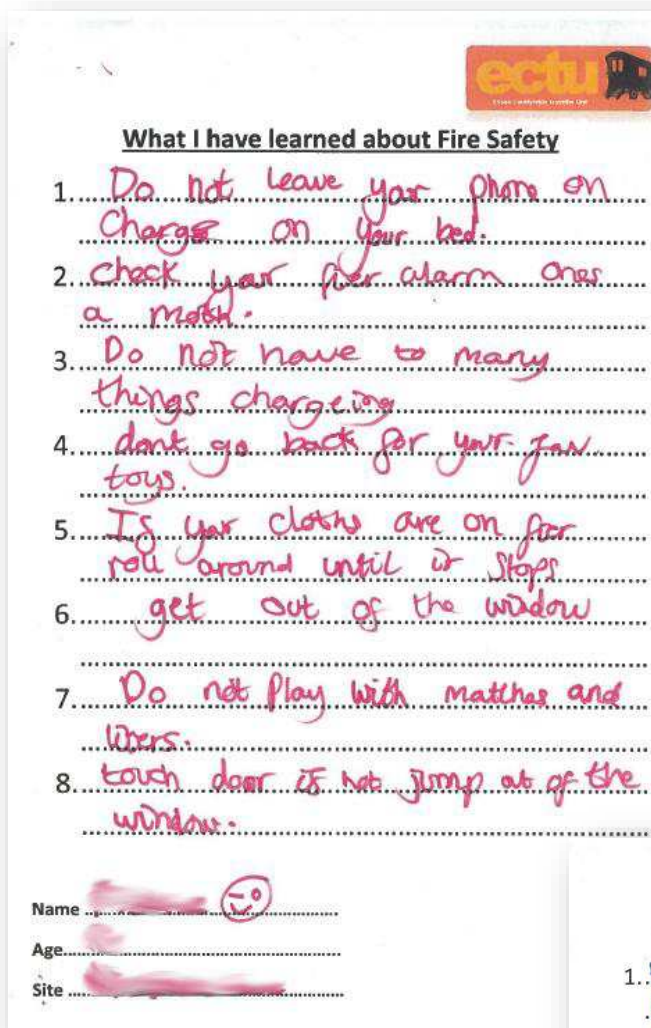 ectu
What I have learned about Fire Safety
1. Do not leave your phone on
Charge on your bed.
2. check your fier alarm ones
a moth.
3. Do not have to many
things chargeing
4. dont go back for your fav
toys.
5. If your cloths are on fier
roll around until it stops
6. get out of the window
7. Do not Play with matches and
8. touch door if hot jump out of the
window.
Name
Age
Site
1.